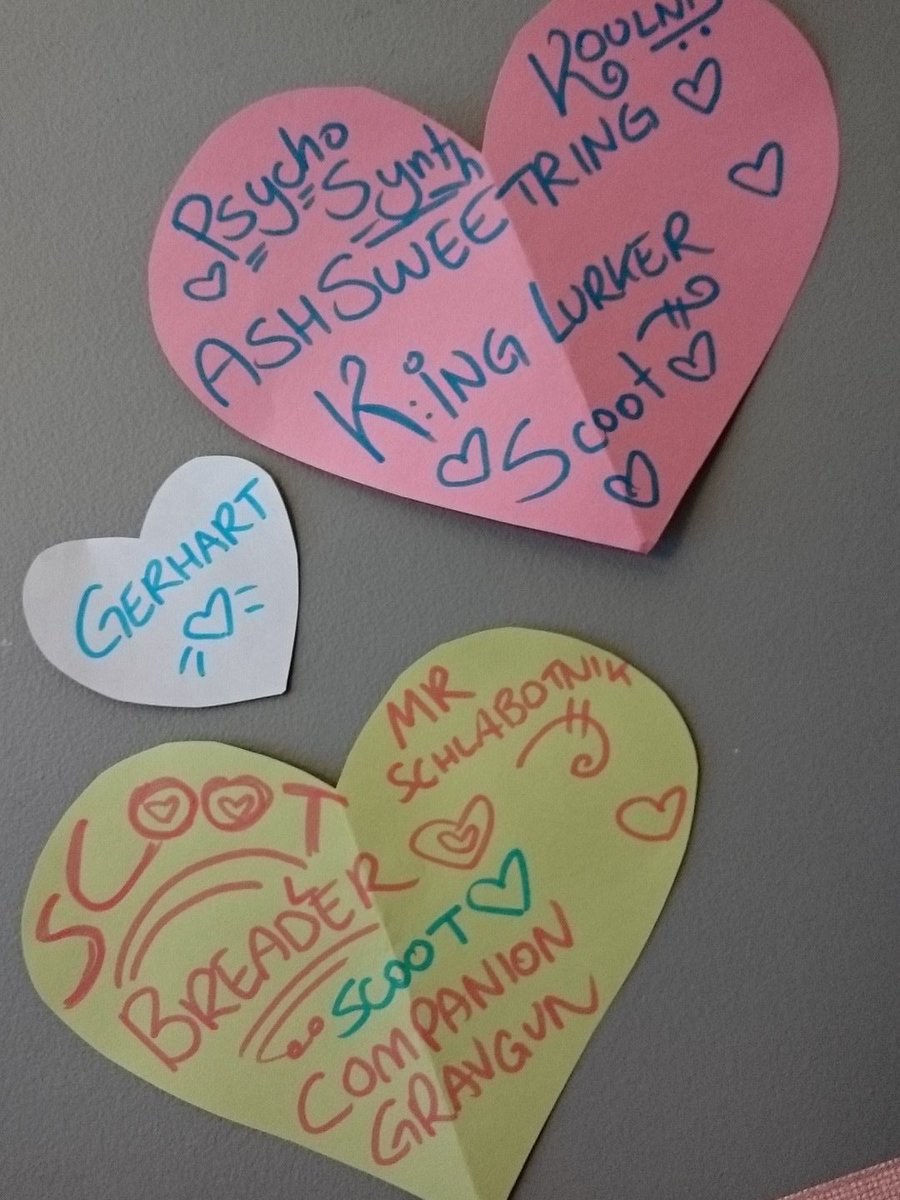 KOULNI
Psycho
Synth
ASHSWEETRING
K:ING LURKER
Scoot
GERHART
MR
SCHLABOTNIK
SCOOT
BREADER
SCOOT
COMPANION
GRAVGUN